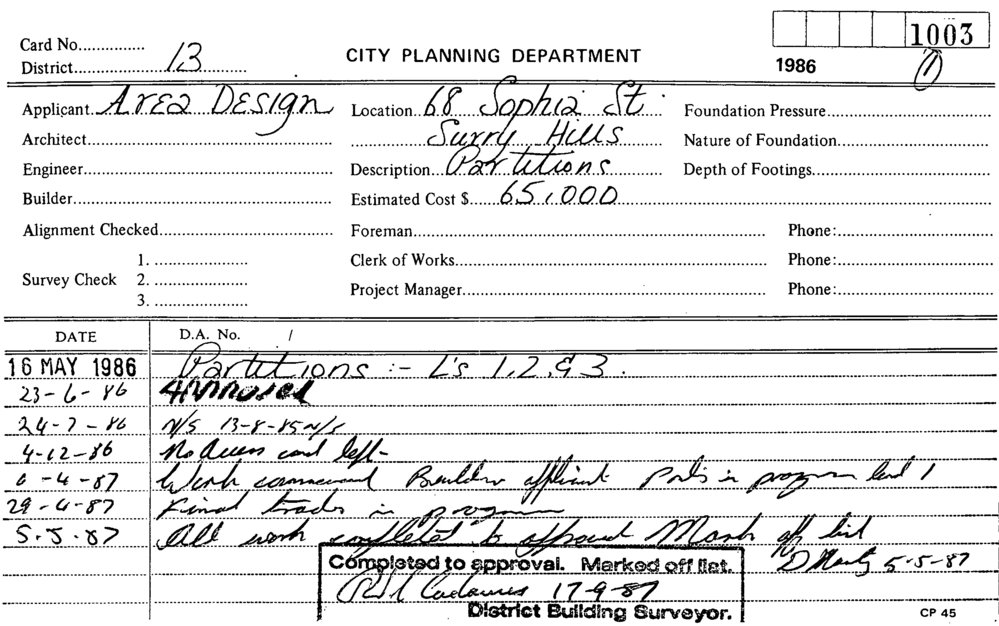 1003
Card No...............
District.............13.............
CITY PLANNING DEPARTMENT
1986
(1)
Applicant Area Design
Location 68 Sophia St
Foundation Pressure
Architect
Surry Hills
Nature of Foundation
Engineer
Description Partitions
Depth of Footings
Builder
Estimated Cost $ 65,000
Alignment Checked
Foreman
Phone:
Survey Check
1.
2.
3.
Clerk of Works
Phone:
Project Manager
Phone:
DATE
D.A. No. /
16 MAY 1986 Partitions :- L's 1,2,& 3.
23-6-86 Approved
24-7-86 N/S 13-8-85 N/S
4-12-86 No Access card left-
6-4-87 Work commenced Builder applicant Parts in progress level 1
29-4-87 Final trades in progress
5.5.87 All work completed to approval Mark off list
5-5-87
Completed to approval. Marked off list.
17-9-87
District Building Surveyor.
CP 45